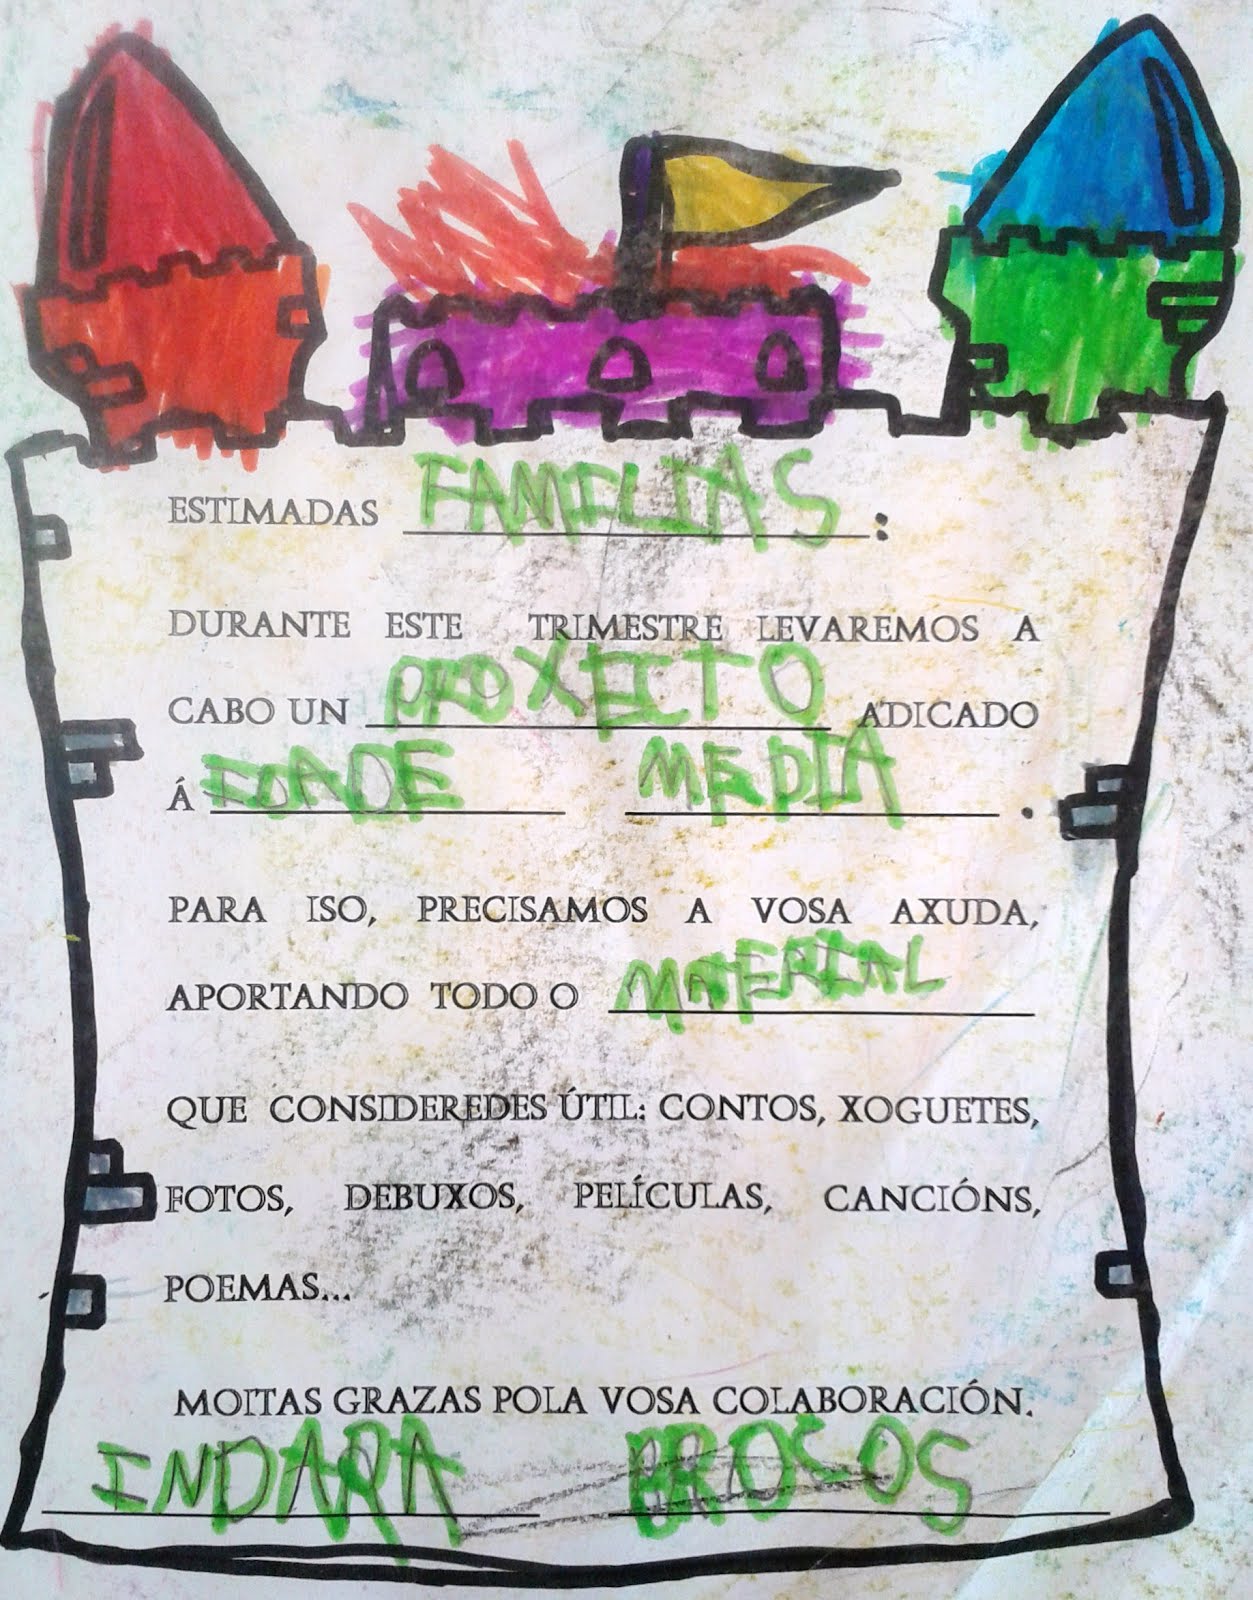 ESTIMADAS FAMILIAS:
DURANTE ESTE TRIMESTRE LEVAREMOS A
CABO UN PROXECTO ADICADO
Á IDADE MEDIA.
PARA ISO, PRECISAMOS A VOSA AXUDA,
APORTANDO TODO O MATERIAL
QUE CONSIDEREDES ÚTIL: CONTOS, XOGUETES,
FOTOS, DEBUXOS, PELÍCULAS, CANCIÓNS,
POEMAS...
MOITAS GRAZAS POLA VOSA COLABORACIÓN.
INDARA BROCOS